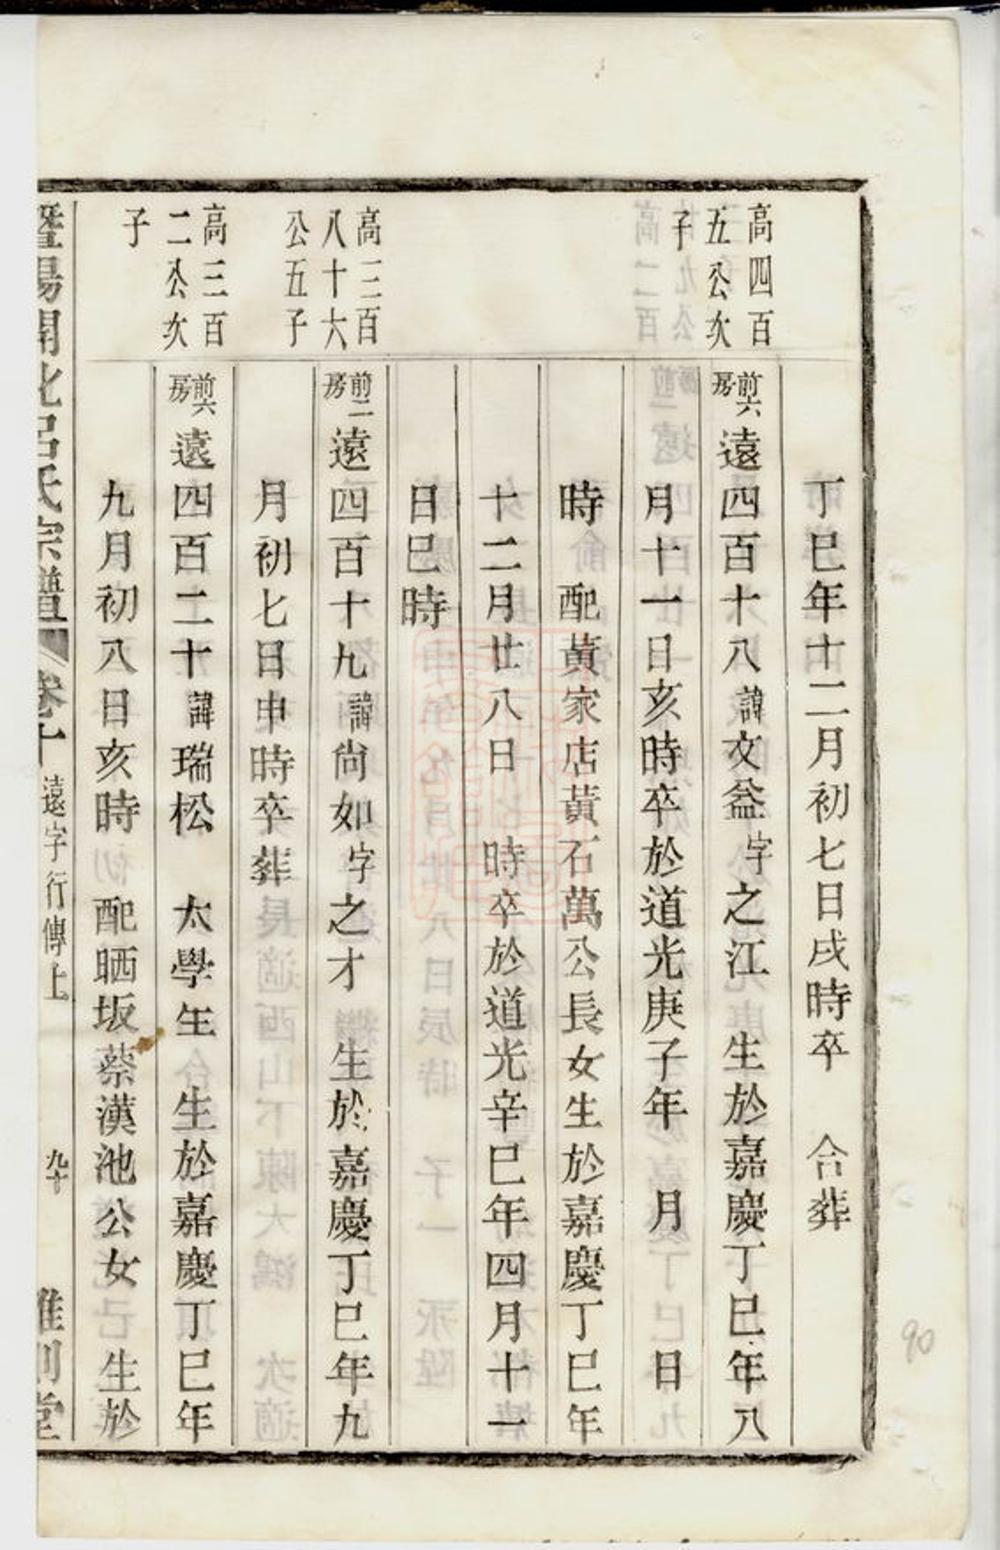 丁巳年十二月初七日戌時卒　合葬
高四百
五公次
子
前六房遠四百十八諱文益字之江　生於嘉慶丁巳年八
月十一日亥時卒於道光庚子年　月　日
時　配黃家店黃石萬公長女生於嘉慶丁巳年
十二月廿八日　時卒於道光辛巳年四月十一
日巳時
高三百
八十六
公五子
前二房遠四百十九諱尚如字之才　生於嘉慶丁巳年九
月初七日申時卒葬
高三百
二公次
子
前六房遠四百二十諱瑞松　太學生　生於嘉慶丁巳年
九月初八日亥時　配晒坂蔡漢池公女　生於
暨陽開化呂氏宗譜　卷十　遠字行傳上　九十
90